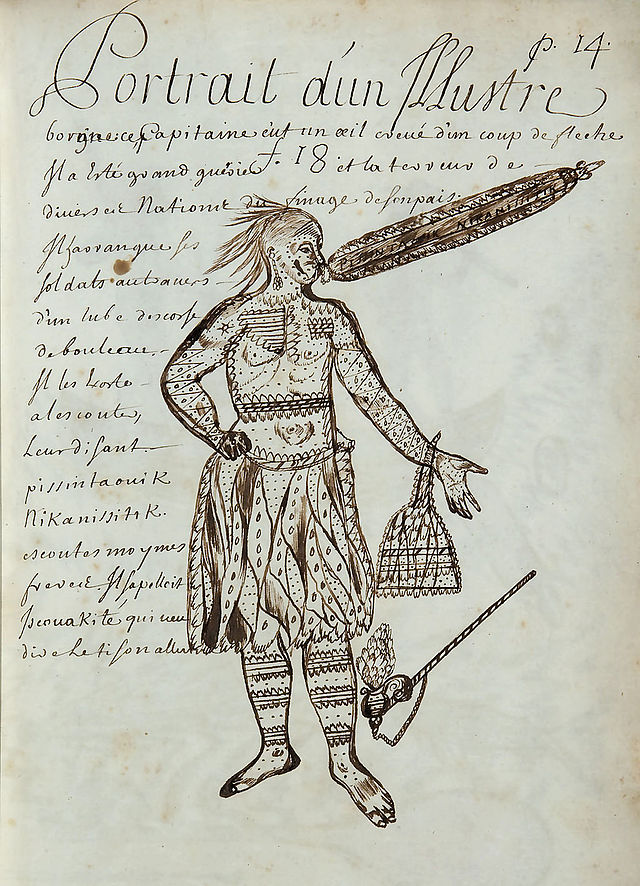 p. 14.
Portrait d'un Illustre
borgne ce Capitaine eut un œil creué d'un coup de fleche
f. 18
Il a Esté grand guérier et la terreur de
diuerse Nations du finage de son pais.
Il harangue ses
soldats au trauers
d'un tube descorse
de bouleau.
Il les Exorte
a lescouter,
Leur disant
pissintaouik
Nikanissitik.
escoutes moy mes
freres Il sapelloit
Iscouakité qui veut
dire Le tison allumé
NIKANISSITIK